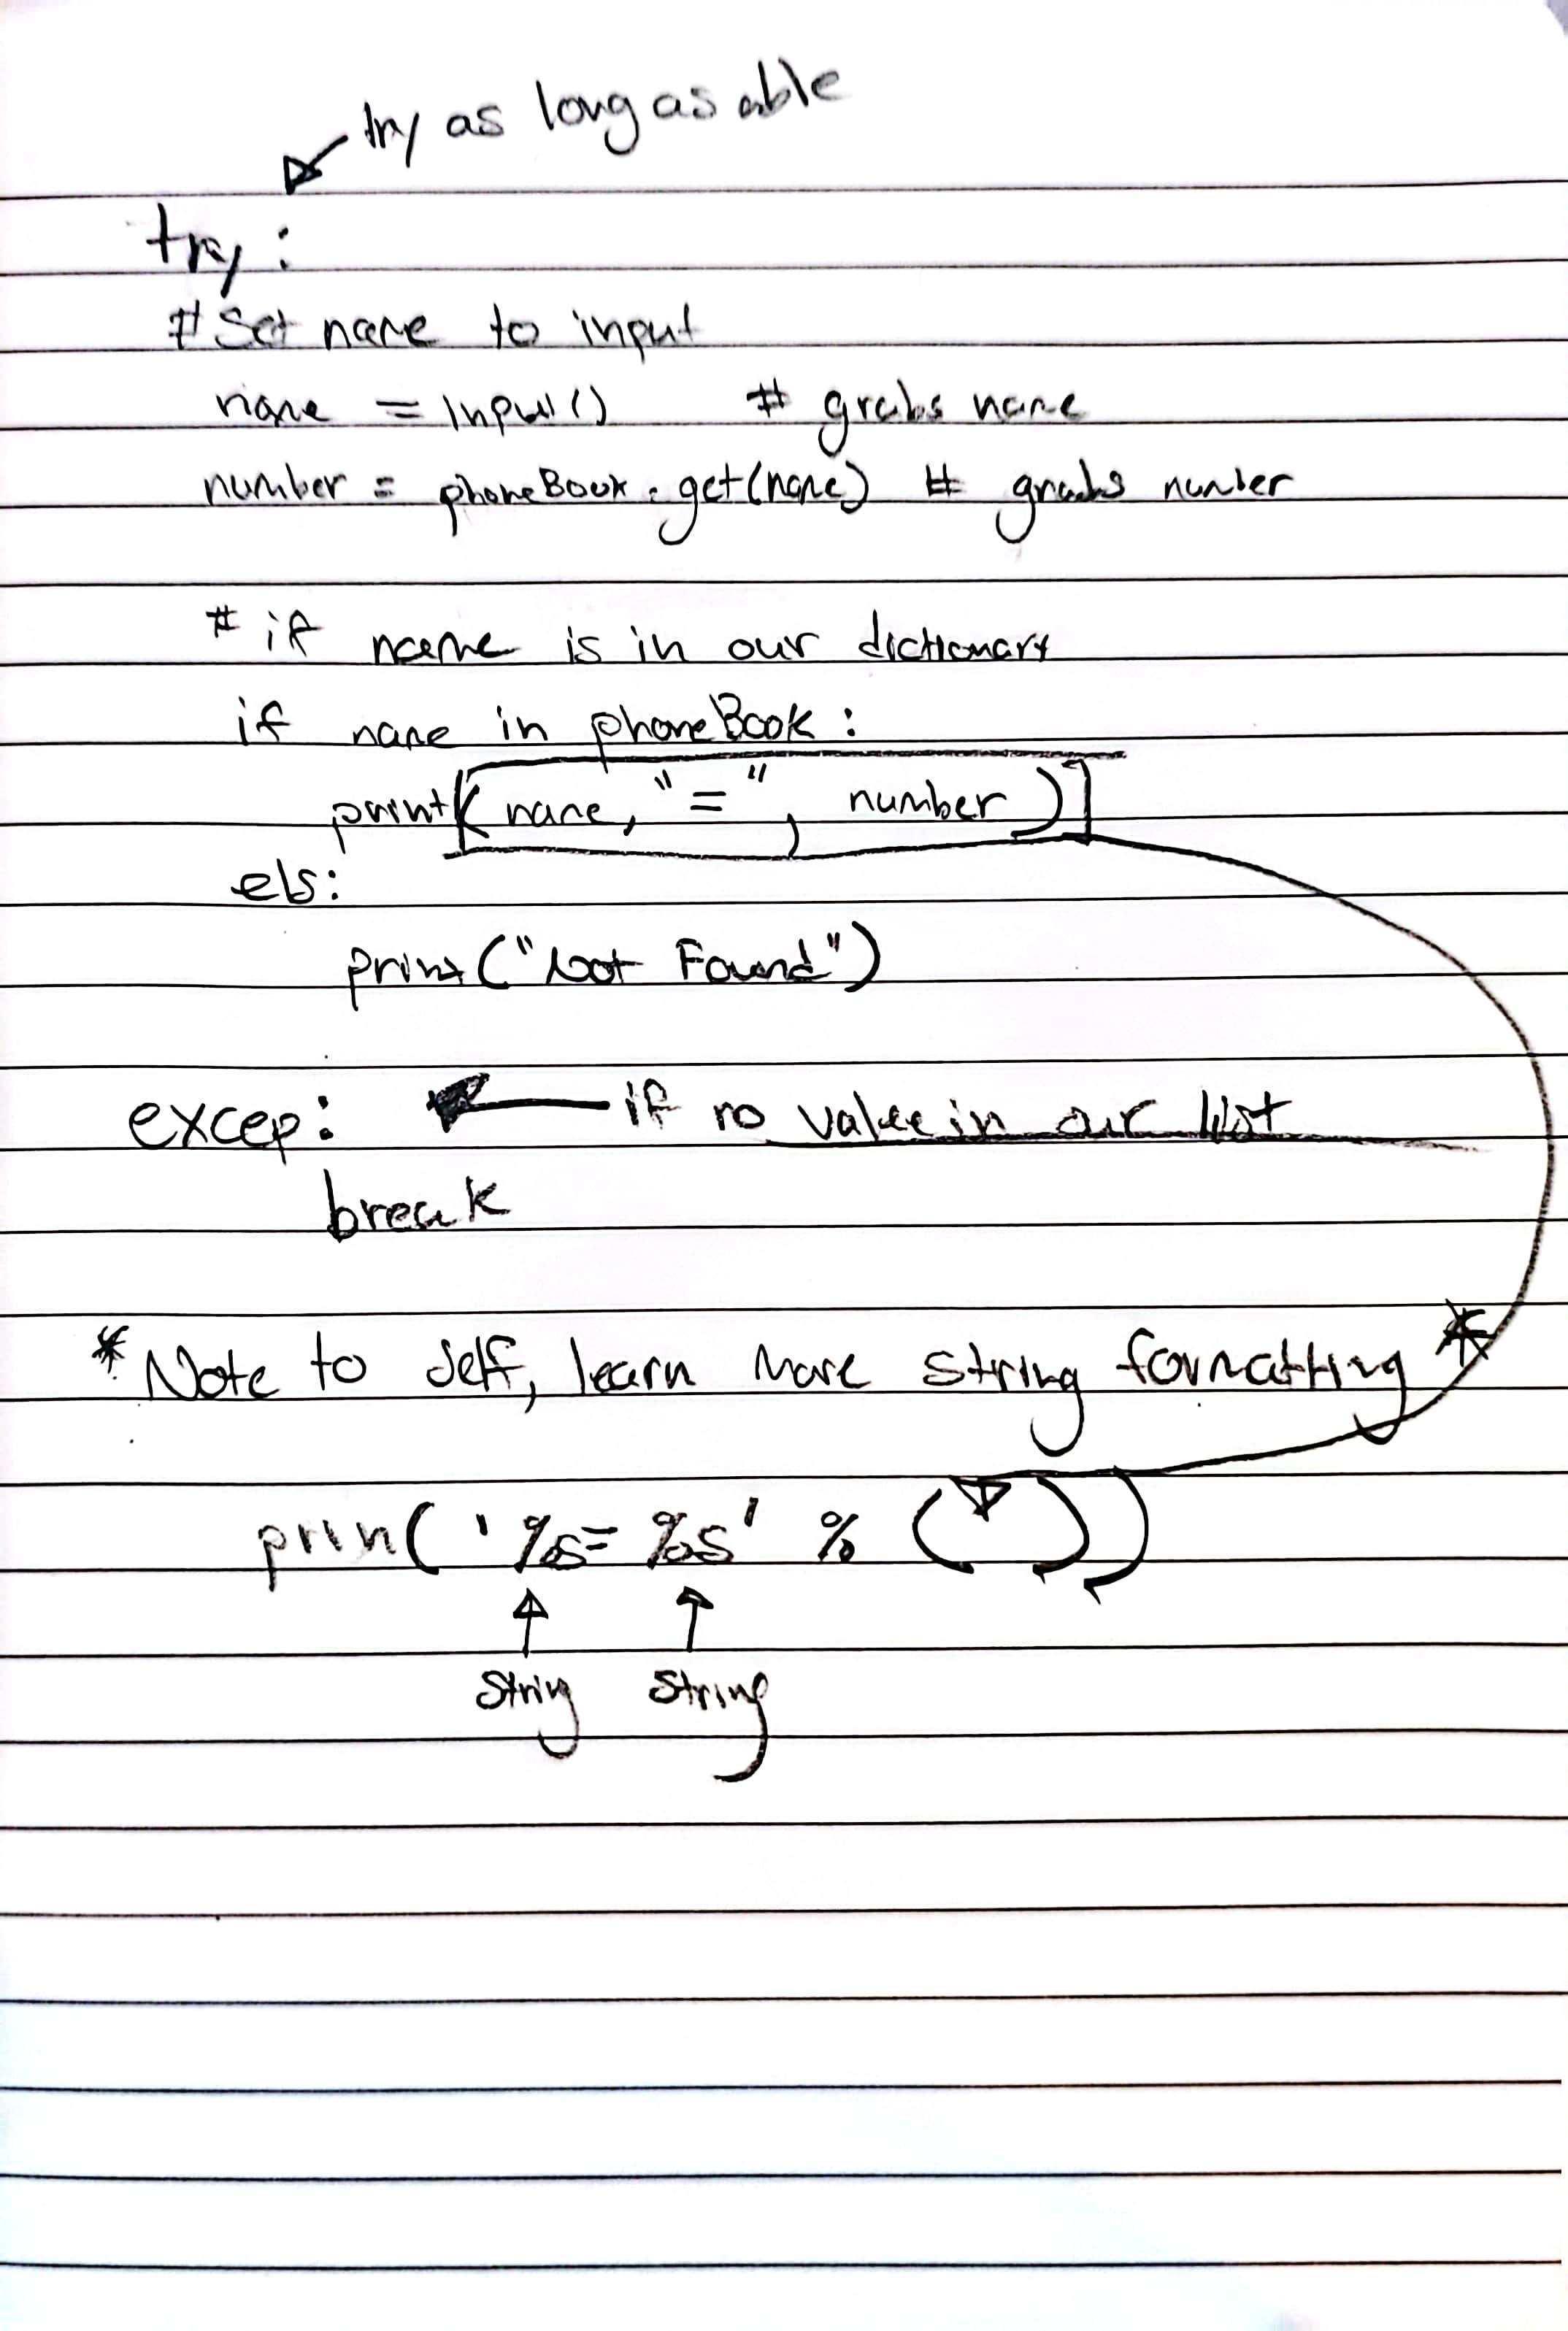 try as long as able
try:
# Set name to input
name = input() # grabs name
number = phoneBook.get(name) # grabs number
# if name is in our dictionary
if name in phoneBook:
print(name, "=", number)
els:
print("Not Found")
excep: if no value in our list
break
*Note to self, learn more string formatting*
prin('%s=%s' % ())
string string